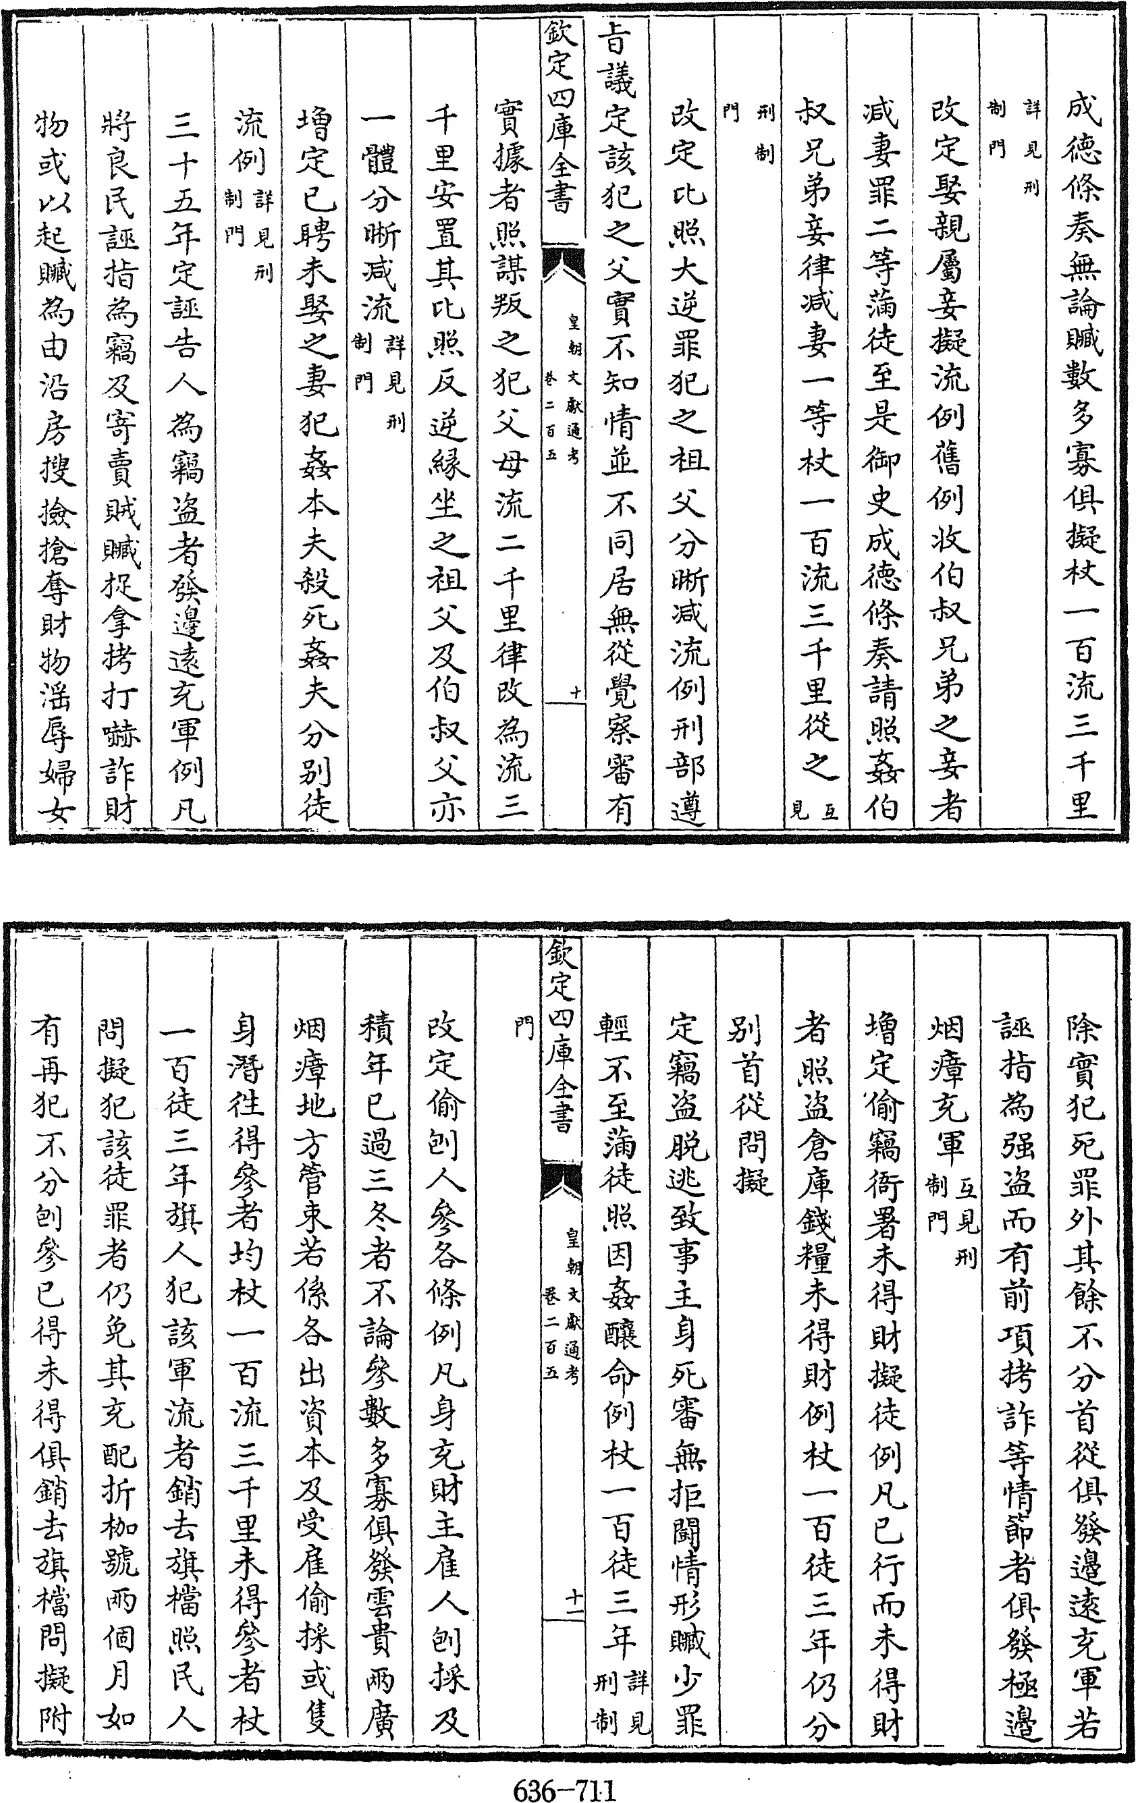 成德條奏無論贓數多寡俱擬杖一百流三千里
詳見刑
制門
改定娶親屬妾擬流例舊例收伯叔兄弟之妾者
減妻罪二等滿徒至是御史成德條奏請照姦伯
叔兄弟妾律減妻一等杖一百流三千里從之互見
刑制
門
改定比照大逆罪犯之祖父分晰減流例刑部遵
旨議定該犯之父實不知情並不同居無從覺察審有
欽定四庫全書
皇朝文獻通考
卷二百五
十
實據者照謀叛之犯父母流二千里律改為流三
千里安置其比照反逆緣坐之祖父及伯叔父亦
一體分晰減流詳見刑制門
增定已聘未娶之妻犯姦本夫殺死姦夫分別徒
流例詳見刑制門
三十五年定誣告人為竊盜者發邊遠充軍例凡
將良民誣指為竊及寄賣賊贓捉拿拷打嚇詐財
物或以起贓為由沿房搜撿搶奪財物滛辱婦女
除實犯死罪外其餘不分首從俱發邊遠充軍若
誣指為强盜而有前項拷詐等情節者俱發極邊
烟瘴充軍互見刑制門
增定偷竊衙署未得財擬徒例凡已行而未得財
者照盜倉庫錢糧未得財例杖一百徒三年仍分
别首從問擬
定竊盜脱逃致事主身死審無拒鬭情形贓少罪
輕不至滿徒照因姦釀命例杖一百徒三年詳見刑制
欽定四庫全書
皇朝文獻通考
卷二百五
十一
門
改定偷刨人參各條例凡身充財主雇人刨採及
積年已過三冬者不論參數多寡俱發雲貴兩廣
烟瘴地方管束若係各出資本及受雇偷採或隻
身潛徃得參者均杖一百流三千里未得參者杖
一百徒三年旗人犯該軍流者銷去旗檔照民人
問擬犯該徒罪者仍免其充配折枷號兩個月如
有再犯不分刨參已得未得俱銷去旗檔問擬附
636-711